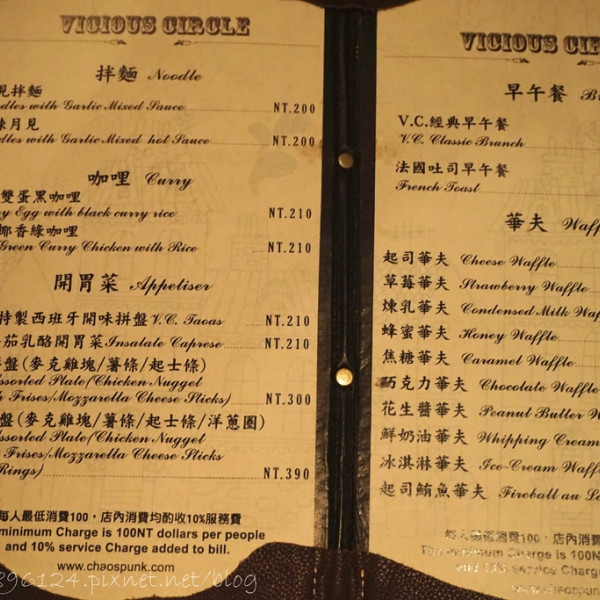 VICIOUS CIRCLE
拌麵 Noodle
見拌麵
with Garlic Mixed Sauce NT.200
月見
with Garlic Mixed hot Sauce NT.200
咖哩 Curry
雙蛋黑咖哩
Egg with black curry rice NT.210
椰香綠咖哩
Green Curry Chicken with Rice NT.210
開胃菜 Appetiser
特製西班牙開味拼盤 V.C. Taoas NT.210
茄乳酪開胃菜 Insalate Caprese NT.210
拼盤(麥克雞塊/薯條/起士條)
Assorted Plate(Chicken Nugget
Frises/Mozzarella Cheese Sticks) NT.300
盤(麥克雞塊/薯條/起士條/洋蔥圈)
Assorted Plate(Chicken Nugget
Frises/Mozzarella Cheese Sticks
Rings) NT.390
每人最低消費100，店內消費均酌收10%服務費
minimum Charge is 100NT dollars per people
and 10% service Charge added to bill.
www.chaospunk.com
896124.pixnet.net/blog
VICIOUS CIR
早午餐
V.C.經典早午餐
V.C. Classic Brunch
法國吐司早午餐
French Toast
華夫 Waff
起司華夫 Cheese Waffle
草莓華夫 Strawberry Waffle
煉乳華夫 Condensed Milk Waf
蜂蜜華夫 Honey Waffle
焦糖華夫 Caramel Waffle
巧克力華夫 Chocolate Waffle
花生醬華夫 Peanut Butter W
鮮奶油華夫 Whipping Cream
冰淇淋華夫 Ice-Cream Waff
起司鮪魚華夫 Fireball au
每人最低消費100，店內
The minimum Charge is 100N
and 10% service Charge
www.chaospunk.com